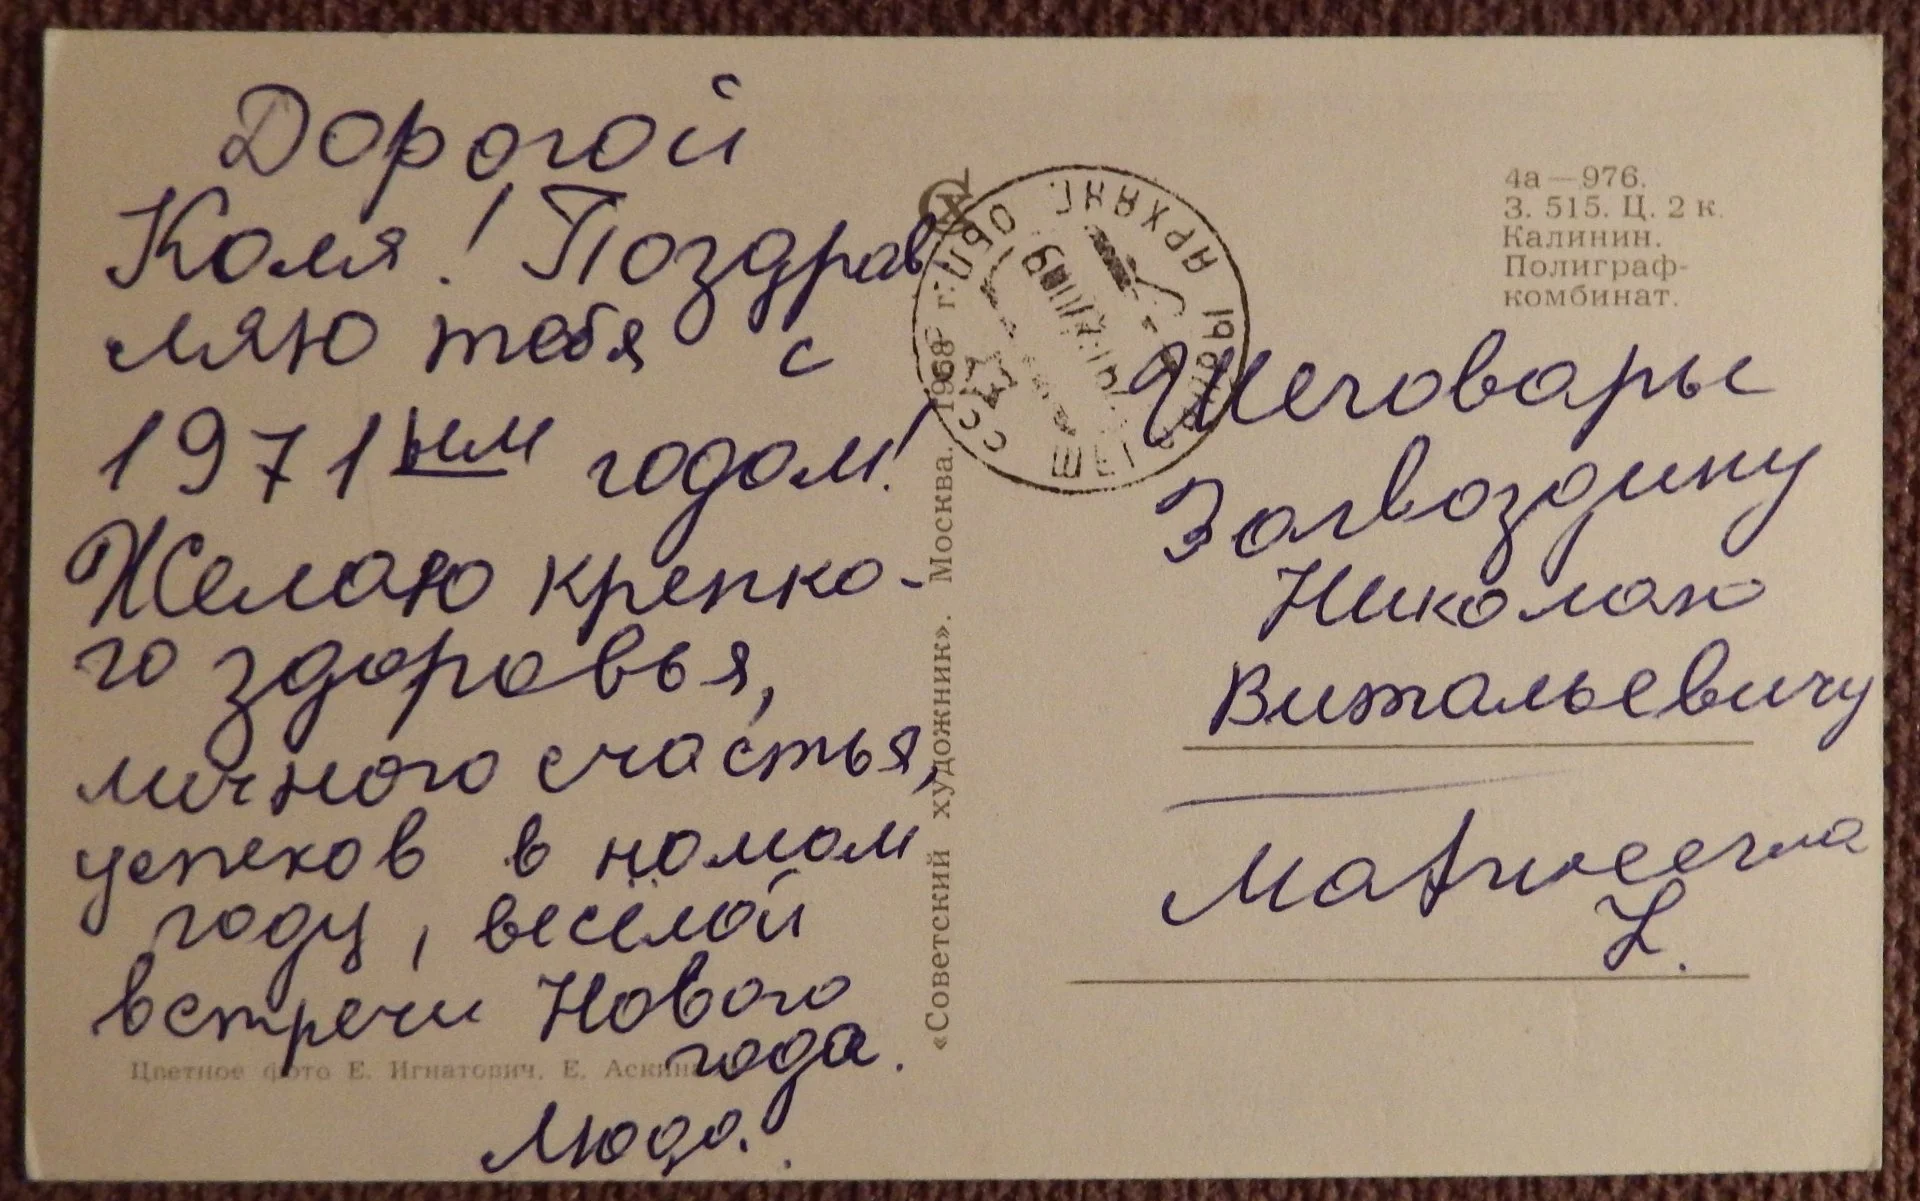 Дорогой
Коля! Поздрав
ляю тебя с
1971ым годом!
Желаю крепко-
го здоровья,
личного счастья,
успехов в номом
году, весёлой
встречи Нового
года.
Люда.
Цветное фото Е. Игнатович. Е.
«Советский художник». Москва. 1968 г.
СССР
АРХАНГ. ОБЛ.
4а—976.
З. 515. Ц. 2 к.
Калинин.
Полиграф-
комбинат.
Шеговары
Загвоздину
Николаю
Витальевичу